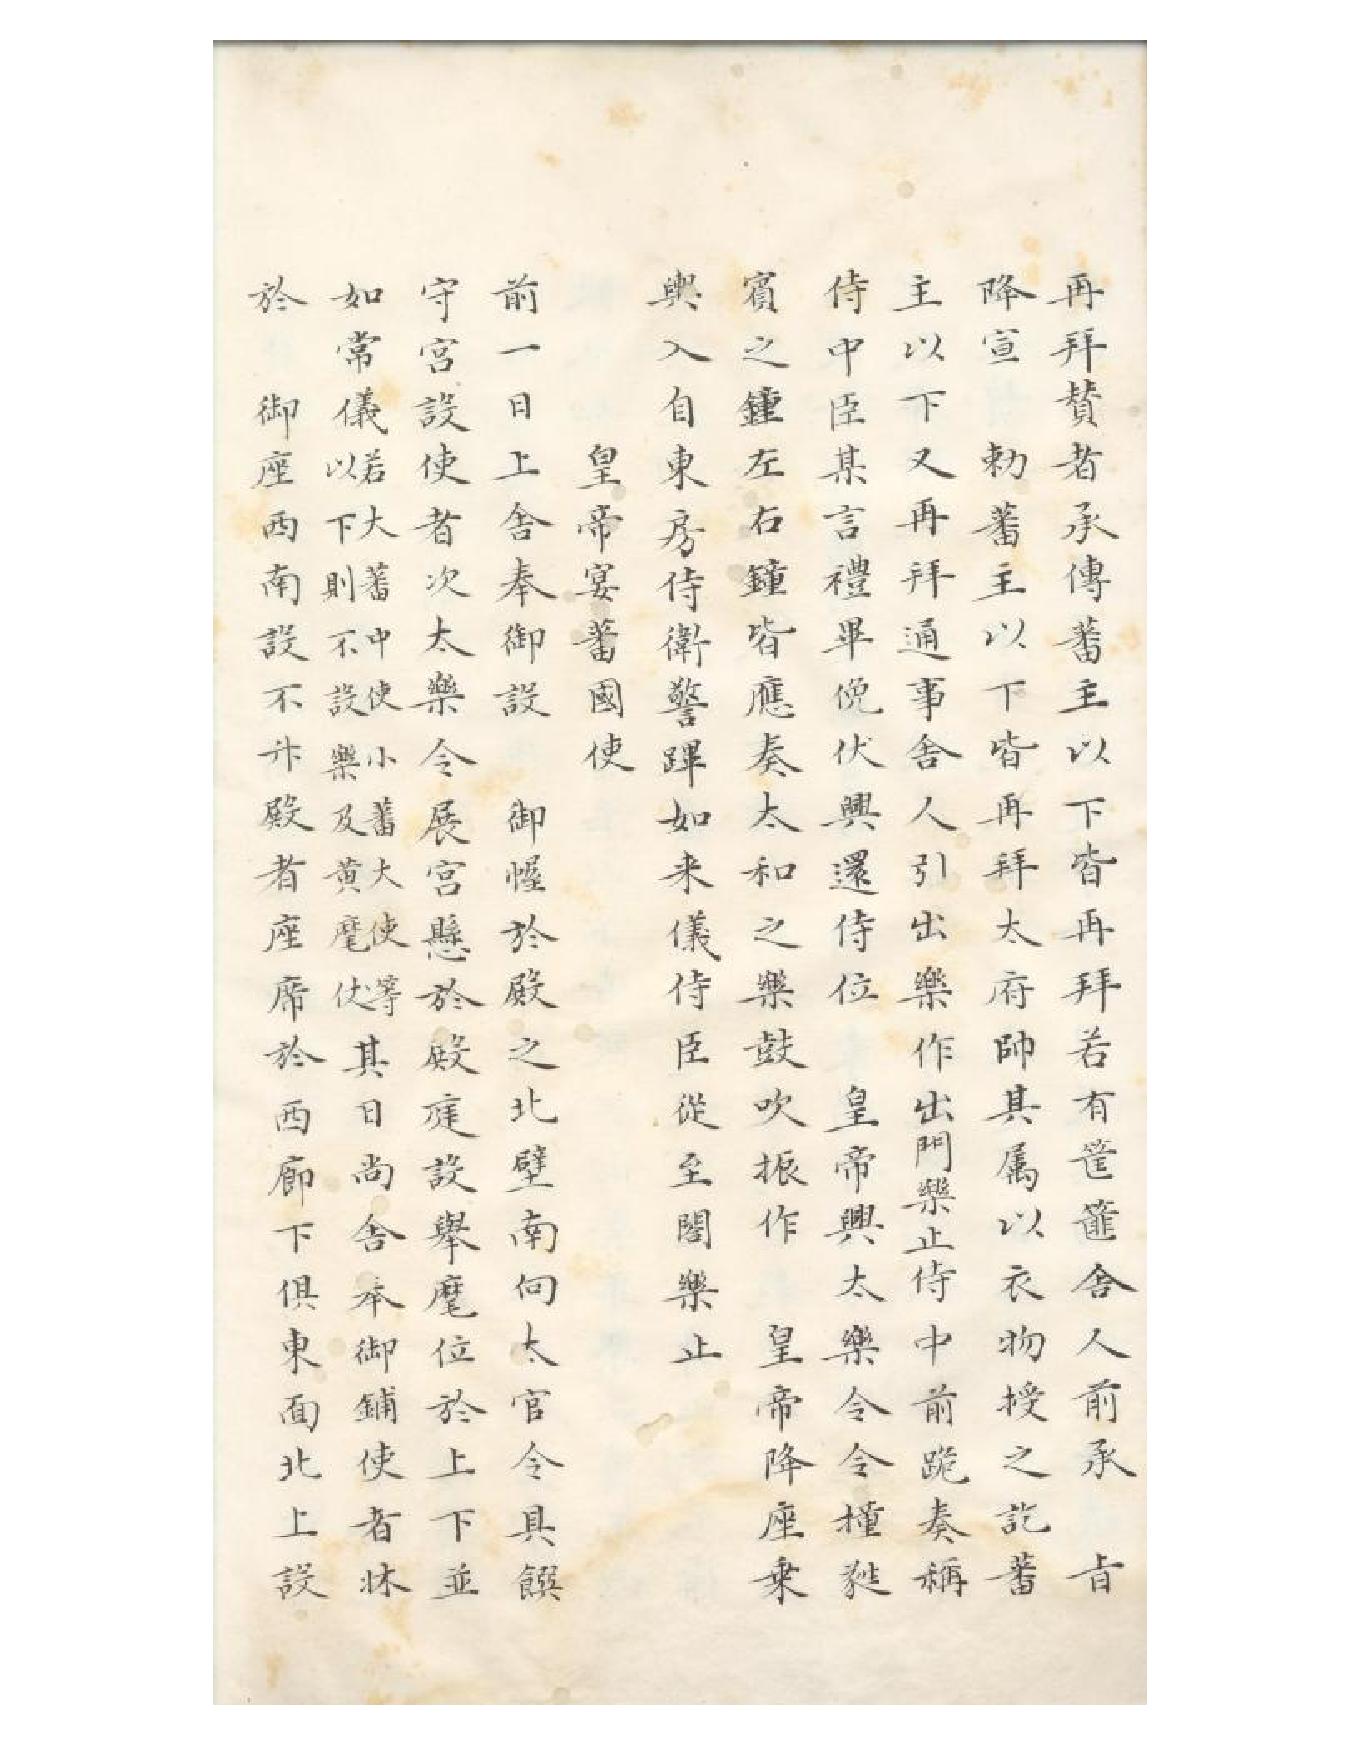 再拜賛者承傳蕃主以下皆再拜若有筐篚舍人前承　旨
降宣　勅蕃主以下皆再拜太府帥其属以衣物授之訖蕃
主以下又再拜通事舎人引出樂作出門樂止侍中前跪奏稱
侍中臣某言禮畢俛伏興還侍位　皇帝興太樂令令撞蕤
賓之鍾左右鐘皆應奏太和之樂鼓吹振作　皇帝降座乗
輿入自東房侍衛警蹕如来儀侍臣從至閤樂止
皇帝宴蕃國使
前一日上舎奉御設　御幄於殿之北壁南向太官令具饌
守宮設使者次太樂令展宮懸於殿庭設舉麾位於上下並
如常儀若大蕃中使小蕃大使等以下則不設樂及黄麾仗其日尚舎奉御鋪使者牀
於　御座西南設不升殿者座席於西廊下俱東面北上設